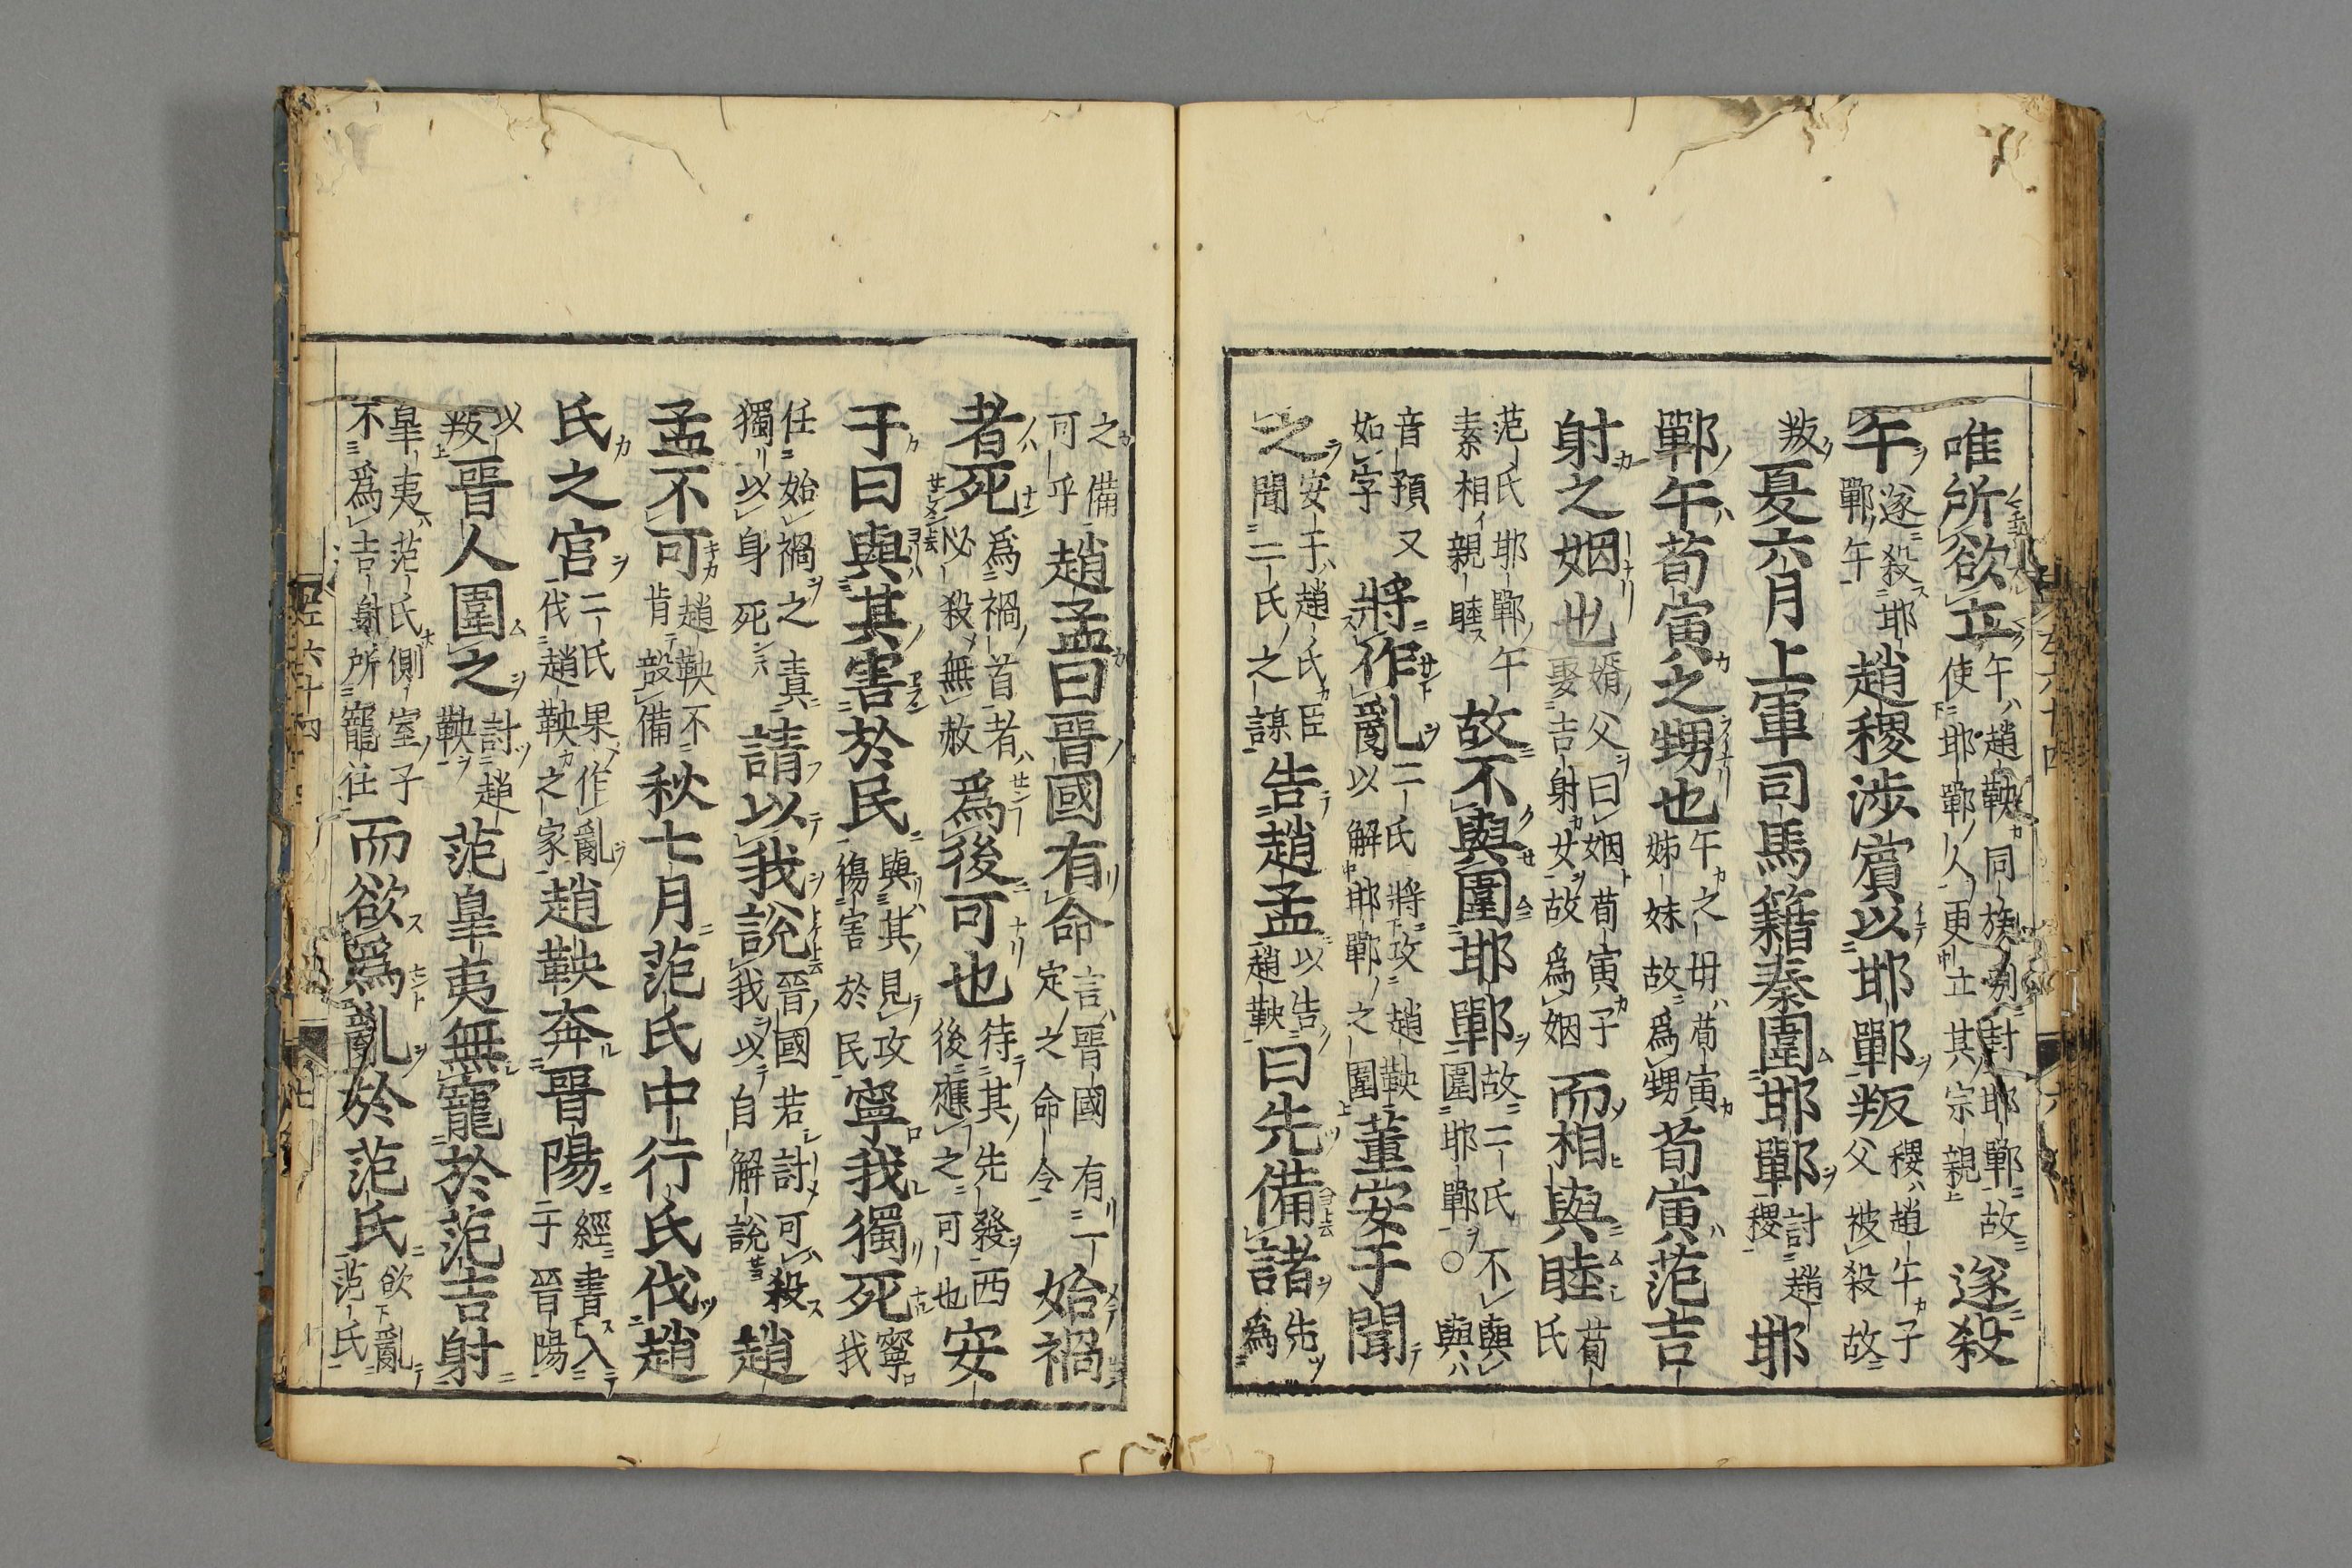 唯所欲立午趙鞅同族別封邯鄲故使邯鄲人更立其宗親遂殺
午遂殺邯鄲午趙稷涉賓以邯鄲叛稷趙午子父被殺故
叛夏六月上軍司馬籍秦圍邯鄲討趙稷邯
鄲午荀寅之甥也午之母荀寅姊妹故爲甥荀寅范吉
射之姻也婿父曰姻荀寅子娶吉射女故爲姻而相與睦荀氏
范氏邯鄲午素相親睦故不與圍邯鄲故二氏不與圍邯鄲○與
音預又如字將作亂二氏將攻趙鞅以解邯鄲之圍董安于聞
之安于趙氏臣聞二氏之謀告趙孟以告趙鞅曰先備諸先爲
之備可乎趙孟曰晉國有命言晉國有定之命令始禍
者死爲禍首者必殺無赦爲後可也待其先發西後應之可也安
于曰與其害於民與其見攻傷害於民寧我獨死寧我
任始禍之責獨以身死請以我說晉國若討可殺我以自解說趙
孟不可趙鞅不肯設備秋七月范氏中行氏伐趙
氏之官二氏果作亂伐趙鞅之家趙鞅奔晉陽經書入于晉陽
以叛晉人圍之討趙鞅范皋夷無寵於范吉射
皋夷范氏側室子不爲吉射所寵任而欲爲亂於范氏欲亂范氏
左六十四
七